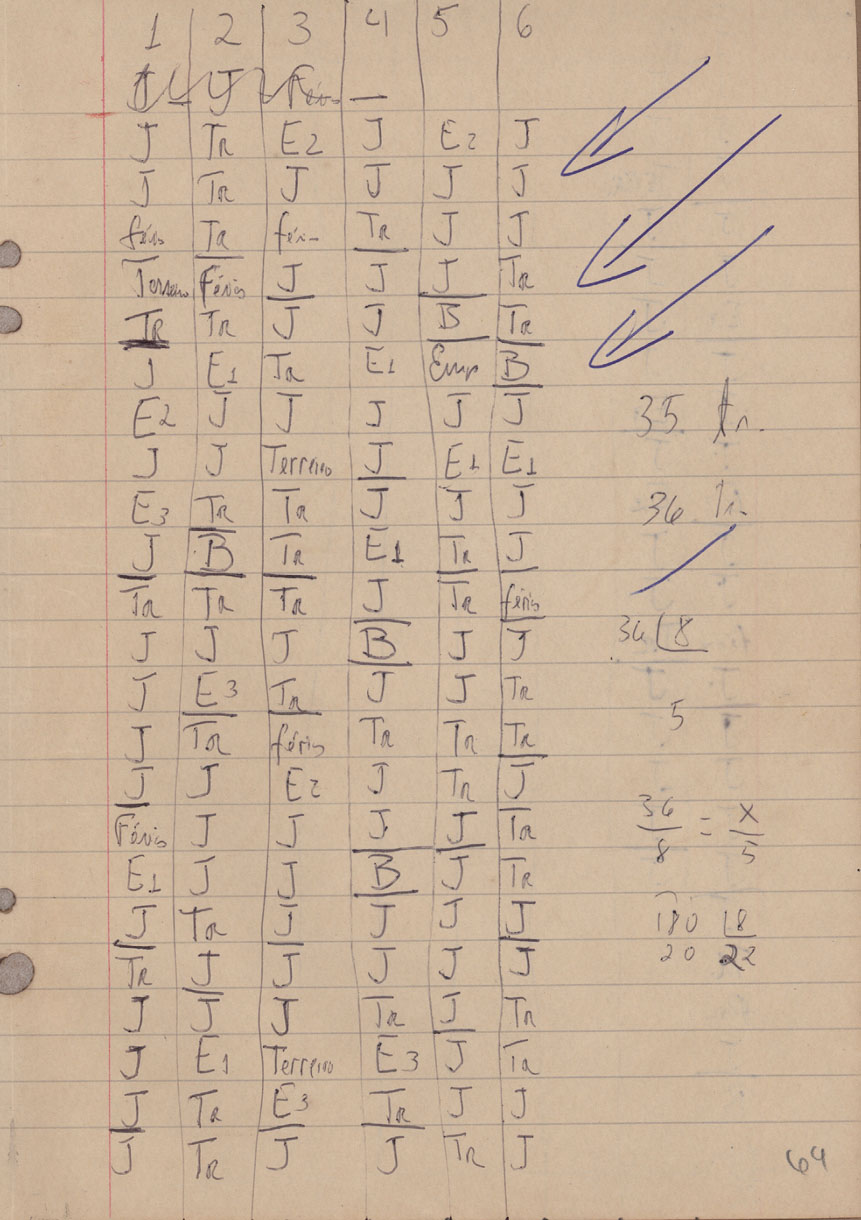 1 2 3 4 5 6
J
J TR E2 J E2 J
J TR J J J J
féri TR féri TR J J
Terreiro Férias J J J TR
TR TR J J B TR
J E1 TR E1 Emp B
E2 J J J J J 35 tr.
J J Terreiro J E1 E1
E3 TR TR J J J 36 Tr.
J B TR E1 TR J
TR TR TR J TR féris
J J J B J J 36 8
J E3 TR J J TR
J TR féris TR TR TR 5
J J E2 J TR J
Féris J J J J TR 36/8 = x/5
E1 J J B J TR
J TR J J J J 180 8
TR J J J J J 20 22
J J J TR J TR
J E1 Terreiro E3 J TR
J TR E3 TR J J
J TR J J TR J 64